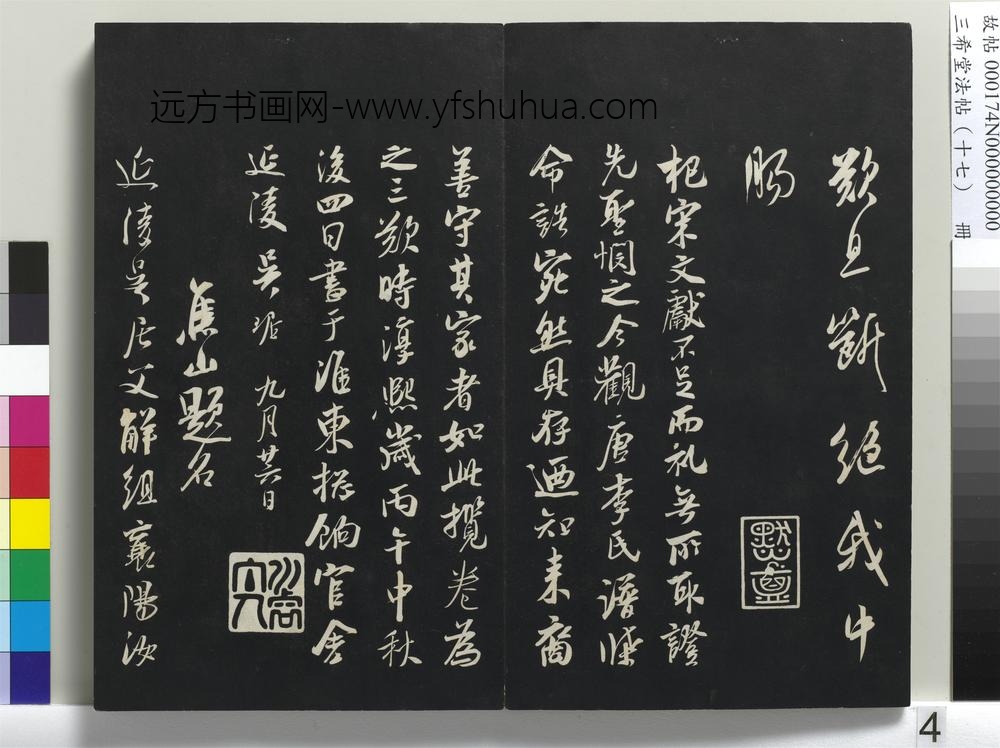 歎且斷絕我中
腸
杞宋文獻不足而礼無所取證
先聖憫之今觀唐李氏譜牒
命誥宛然具存迺知来裔
善守其家者如此攬卷為
之三歎時淳熙歲丙午中秋
後四日書于淮東揔餉官舍
延陵吴琚 九月廿六日
焦山題名
延陵吴居父解組襄陽汝
远方书画网-www.yfshuhua.com
故帖 000174N000000000
三希堂法帖（十七） 冊
4